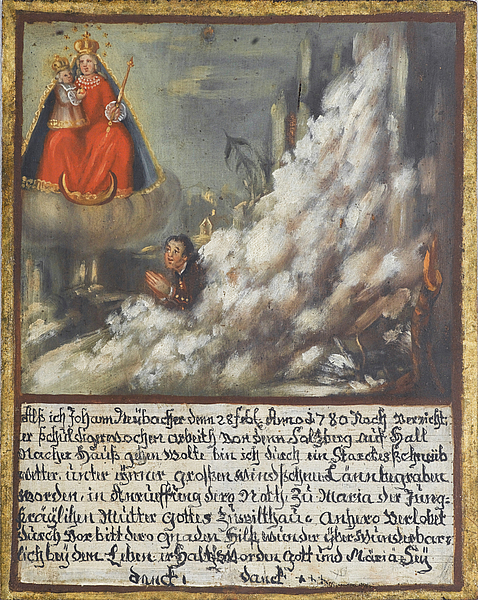 Alß ich Johann Neubacher denn 28 feb: Anno 1780 Nach Verricht,
er schuldiger wochen arbeith von denn Salzberg auf Hall
nacher Hauß gehen wolte bin ich durch ein Starckes schneib
wetter, unter einer grossen windschen Länn begraben
worden, in Anruffung dero Noth, Zu Maria der Jung,
fräylihen Mutter Gottes Zu wilthau. Anhero verlobet
durch vor bitt dero gnaden Hilf, wunder yber wunderbar,
lich bey dem Leben, er Halten worden Gott und Maria Sey
danck, danck.